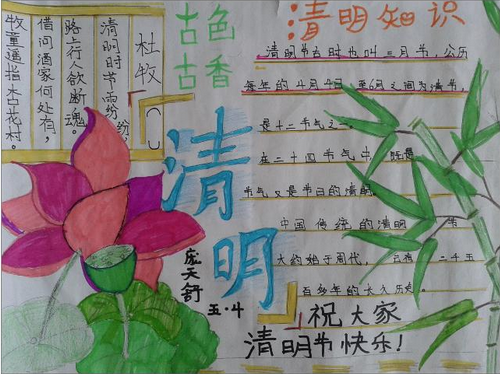 古色
古香
杜牧
清明时节雨纷纷
路上行人欲断魂。
借问酒家何处有,
牧童遥指杏花村。
清明知识
清明节古时也叫三月节,公历
每年的4月4日 至6月之间为清节,
是十二节气之
在二十四节气中, 既是
节气又是节日的清明
中国 传统的清明 节
大约始于周代, 二千五
百多年的大久历史
清明
庞天舒
五·4
祝大家
清明节快乐!